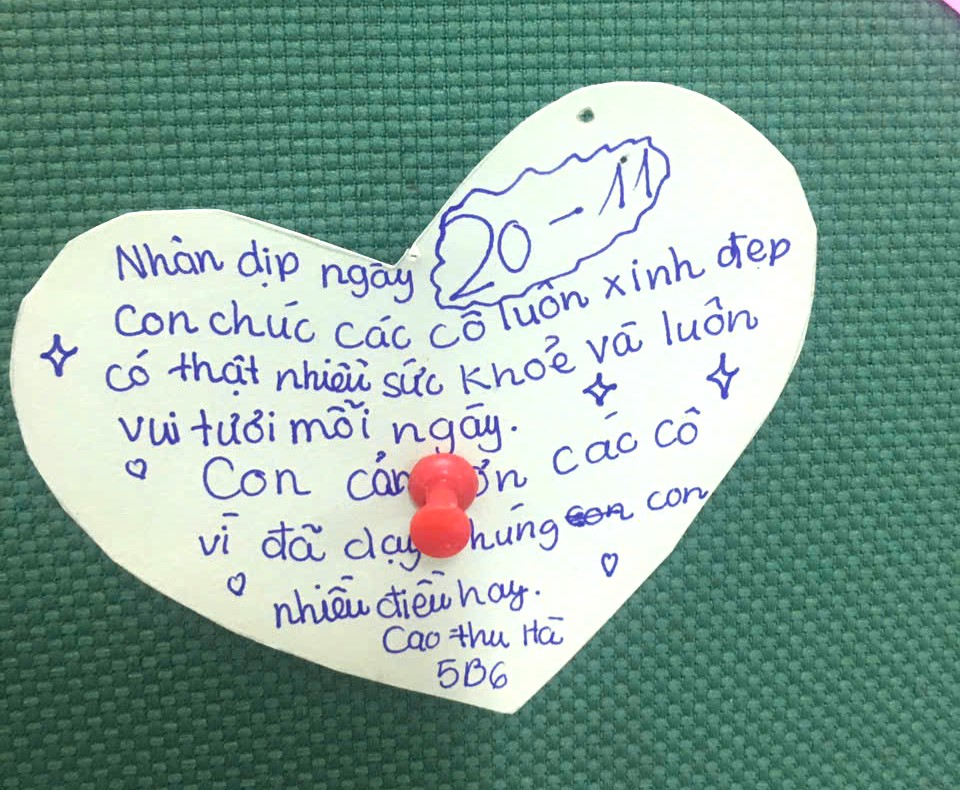 Nhân dịp ngày 20-11
Con chúc các cô luôn xinh đẹp
có thật nhiều sức khoẻ và luôn
vui tươi mỗi ngày.
Con cảm ơn các cô
vì đã dạy chúng con
nhiều điều hay.
Cao Thu Hà
5B6